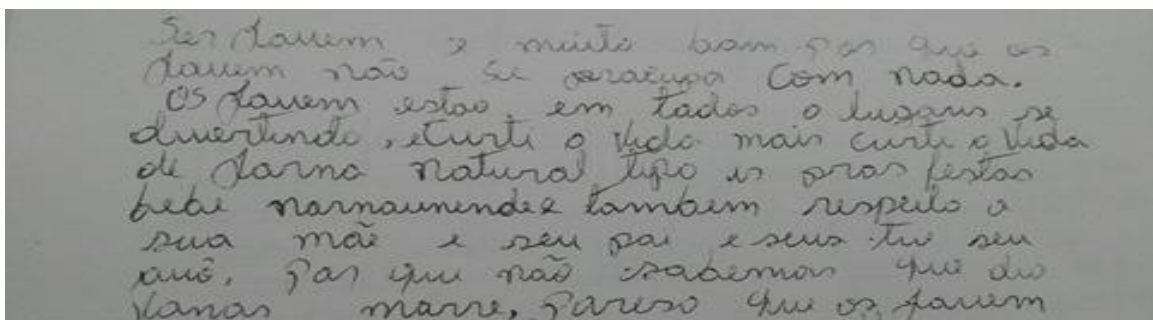 Ser Jovem e muito bom por que os
Jovem não se preocupa com nada.
Os Jovem estao em todos o lugares se
divertindo, e Curti o vida mais curti a vida
de forma natural tipo is pras festas
bebe também respeito a
sua mãe e seu pai e seus tio seu
avô, por que não sabemos que dia
vamos morre, que os jovem